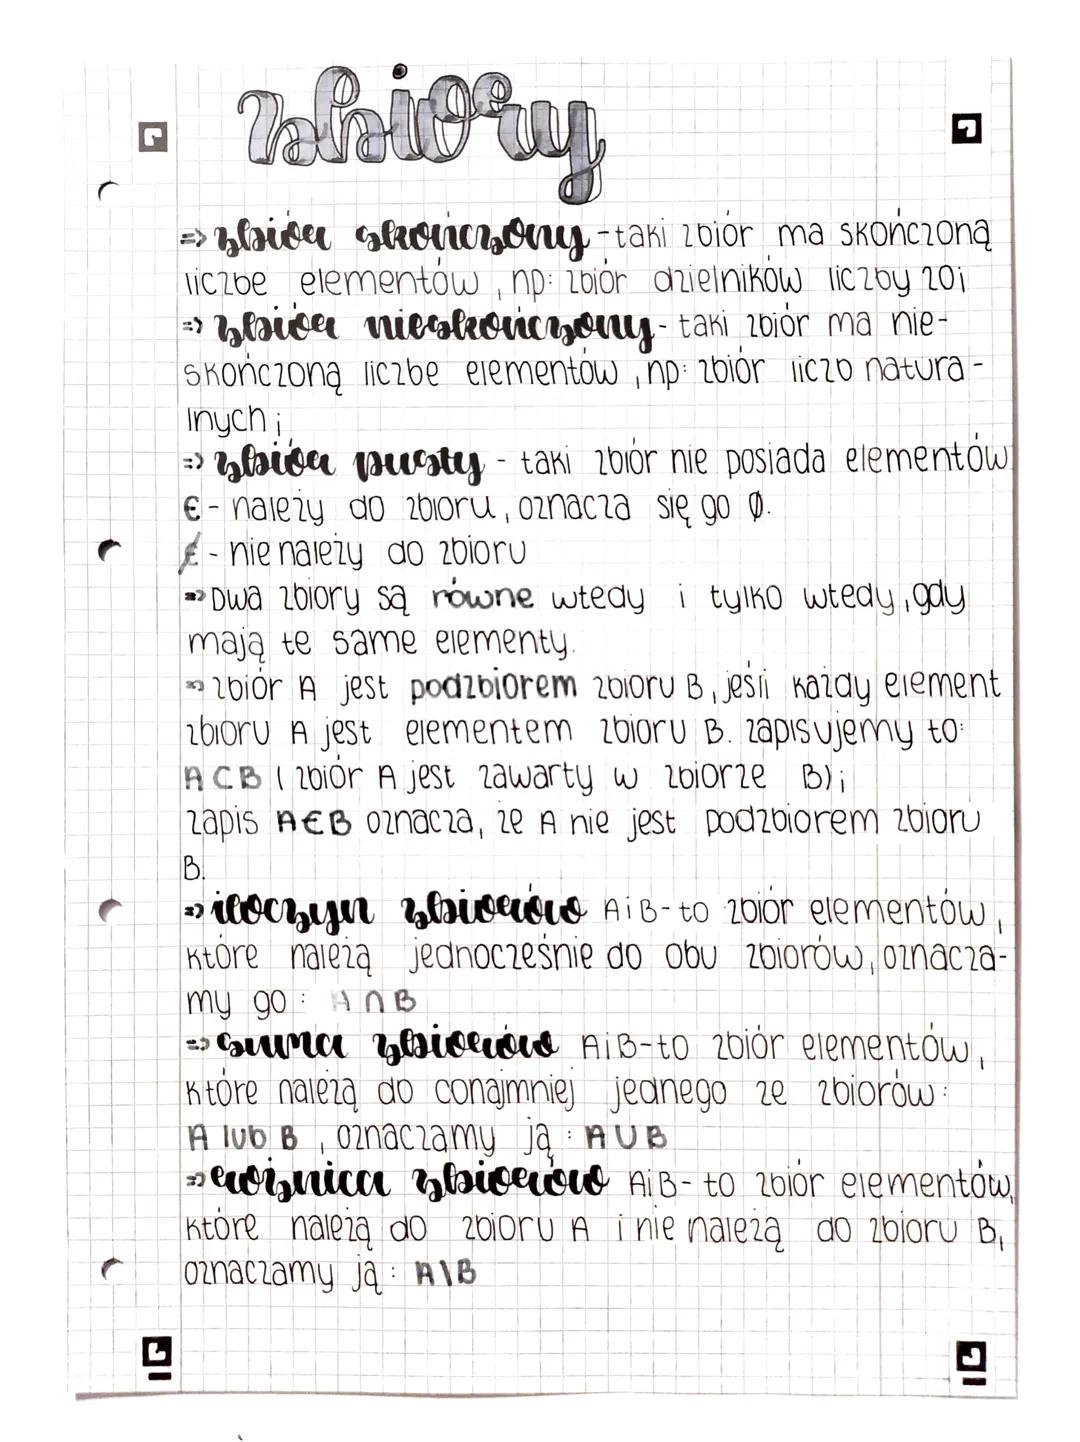 zbiory
=> zbiór skończony - taki zbiór ma skończoną
liczbe elementów, np: zbiór dzielników liczby 20;
=> zbiór nieskończony - taki zbiór ma nie-
skończoną liczbe elementów, np: zbiór liczb natura-
lnych;
=> zbiór pusty - taki zbiór nie posiada elementów
∈ - należy do zbioru, oznacza się go ∅.
∉ - nie należy do zbioru
=> Dwa zbiory są równe wtedy i tylko wtedy, gdy
mają te same elementy.
=> zbiór A jest podzbiorem zbioru B, jeśli każdy element
zbioru A jest elementem zbioru B. zapisujemy to:
A⊂B (zbiór A jest zawarty w zbiorze B);
zapis A∈B oznacza, że A nie jest podzbiorem zbioru
B.
=> iloczyn zbiorów A i B - to zbiór elementów,
które należą jednocześnie do obu zbiorów, oznacza-
my go: A∩B
=> suma zbiorów A i B - to zbiór elementów,
które należą do conajmniej jednego ze zbiorów:
A lub B, oznaczamy ją: A∪B
=> różnica zbiorów A i B - to zbiór elementów,
które należą do zbioru A i nie należą do zbioru B,
oznaczamy ją: A\B